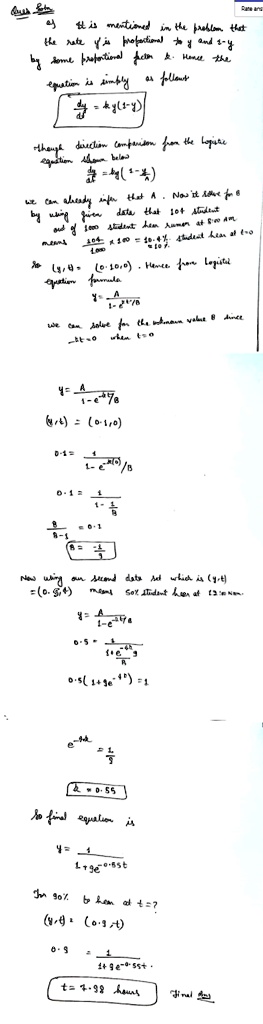 Rate ans
Ques Soln
a) It is mentioned in the problem that
the rate y is proportional to y and 1-y
by some proportional factor k. Hence the
equation is simply as follows
dy/dt = ky(1-y)
though direction comparison from the logistic
equation shown below
dy/dt = ky(1 - y/A)
we can already infer that A. Now it solve for B
by using given data that 104 student
out of 1000 student hear rumor at 8:00 AM
means 104/1000 × 100 = 10.4% student hear at t=0
≈10%
So (y,t) = (0.10,0). Hence from logistic
equation formula
y = A/(1-e^-kt/B)
we can solve for the unknown value B since
-kt=0 when t=0
y = A/(1-e^-kt/B)
(y,t) = (0.1,0)
0.1 = 1/(1-e^-k(0)/B)
0.1 = 1/(1-1/B)
B/(B-1) = 0.1
B = -1/9
Now using our second data set which is (y,t)
=(0.5,4) means 50% student hear at 12:00 Noon.
y = A/(1-e^-kt/B)
0.5 = 1/(1+e^-4k 9)
0.5(1+9e^-4k) = 1
e^-4k = 1/9
k = 0.55
So final equation is
y = 1/(1+9e^-0.55t)
For 90% to hear at t=?
(y,t) = (0.9,t)
0.9 = 1/(1+9e^-0.55t).
t = 7.98 hours Final Ans